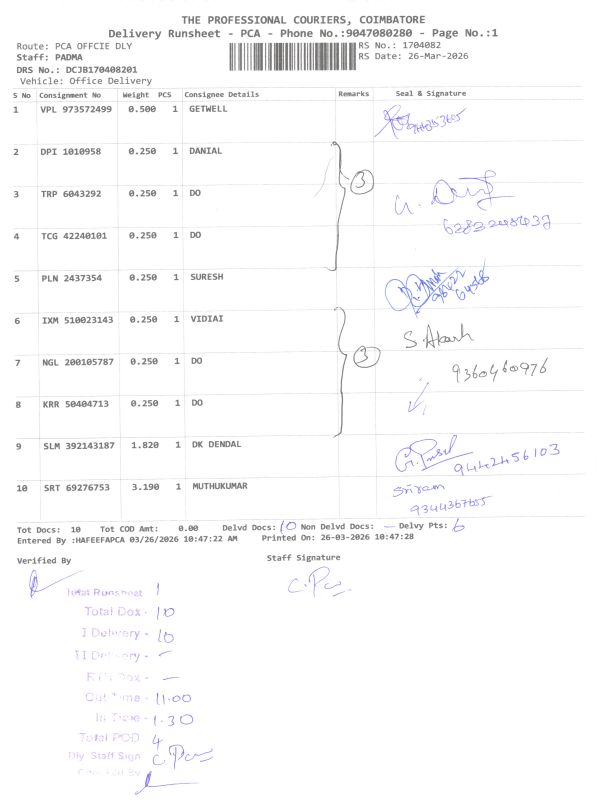 THE PROFESSIONAL COURIERS, COIMBATORE
Delivery Runsheet - PCA - Phone No.:9047080280 - Page No.:1
Route: PCA OFFCIE DLY
RS No.: 1704082
Staff: PADMA
RS Date: 26-Mar-2026
DRS No.: DCJB170408201
Vehicle: Office Delivery
S No Consignment No Weight PCS Consignee Details Remarks Seal & Signature
1 VPL 973572499 0.500 1 GETWELL
2 DPI 1010958 0.250 1 DANIAL
3
3 TRP 6043292 0.250 1 DO
4 TCG 42240101 0.250 1 DO
5 PLN 2437354 0.250 1 SURESH
6 IXM 510023143 0.250 1 VIDIAI
S Akash
7 NGL 200105787 0.250 1 DO
3
9360460976
8 KRR 50404713 0.250 1 DO
9 SLM 392143187 1.820 1 DK DENDAL
9442456103
10 SRT 69276753 3.190 1 MUTHUKUMAR
Sriram
9344367655
Tot Docs: 10 Tot COD Amt: 0.00 Delvd Docs: 10 Non Delvd Docs: — Delvy Pts: 6
Entered By :HAFEEFAPCA 03/26/2026 10:47:22 AM Printed On: 26-03-2026 10:47:28
Verified By
Staff Signature
Total Runsheet 1
Total Dox - 10
I Delivery - 10
II Delivery - —
Dox - —
Out Time - 11.00
In Time - 1.30
Total POD 4
Dly. Staff Sign
Checked By